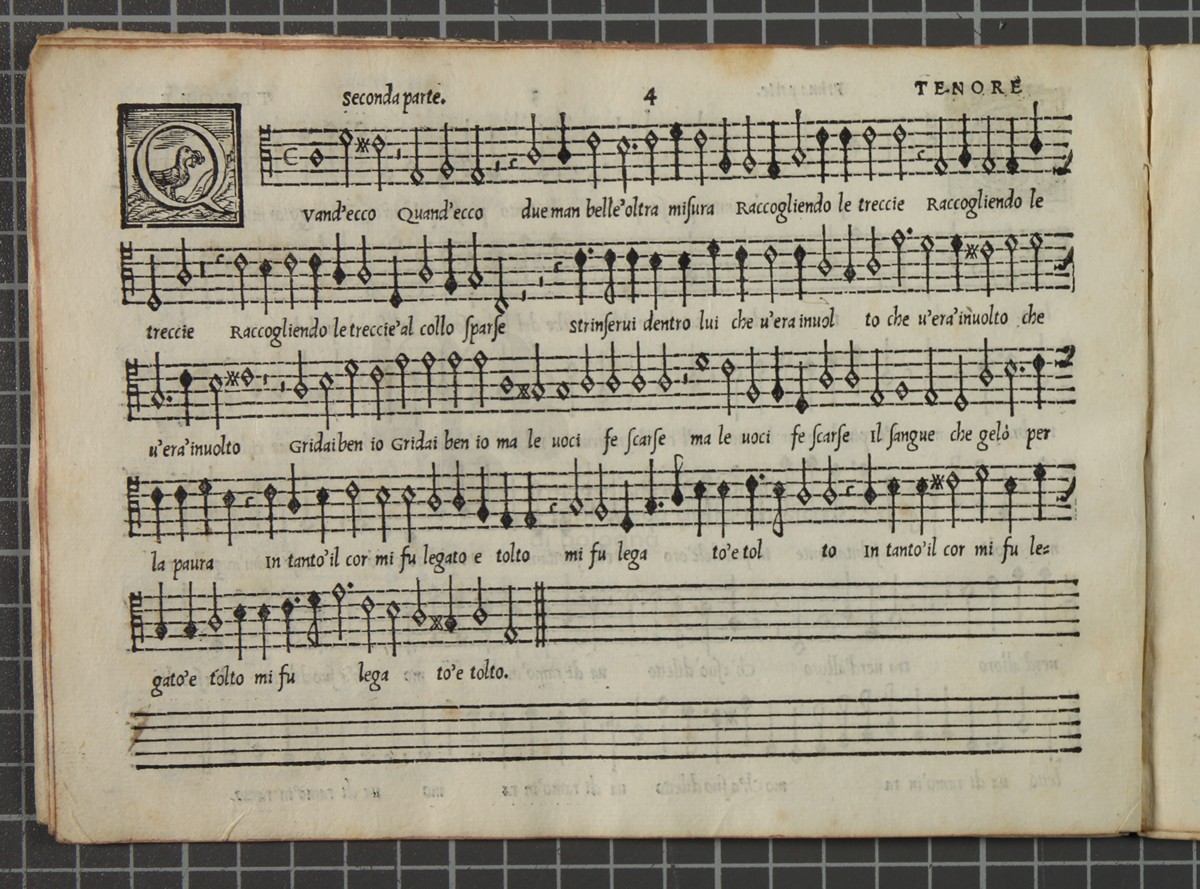 Seconda parte. 4 TENORE
QVand'ecco Quand'ecco due man belle'oltra miſura Raccogliendo le treccie Raccogliendo le
treccie Raccogliendo le treccie'al collo ſparſe Strinſerui dentro lui che u'era inuol to che u'era'inuolto che
u'era'inuolto Gridai ben io Gridai ben io ma le uoci fe ſcarſe ma le uoci fe ſcarſe Il ſangue che gelò per
la paura In tanto'il cor mi fu legato e tolto mi fu lega to'e tol to In tanto'il cor mi fu le=
gato'e tolto mi fu lega to'e tolto.